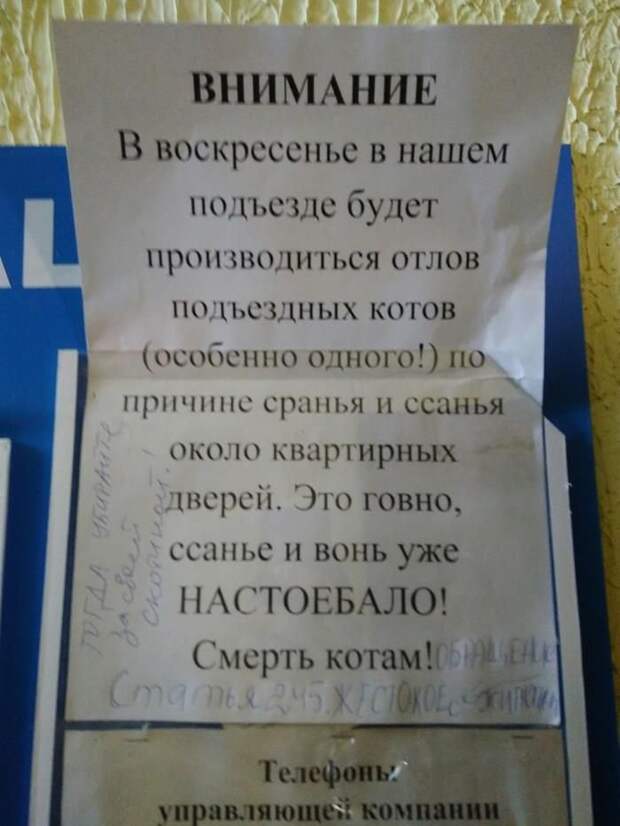 ВНИМАНИЕ
В воскресенье в нашем
подъезде будет
производиться отлов
подъездных котов
(особенно одного!) по
причине сранья и ссанья
около квартирных
дверей. Это говно,
ссанье и вонь уже
НАСТОЕБАЛО!
Смерть котам!
ТОГДА УБИРАЙТЕ
за своей
скотиной!
Статья 245. ЖЕСТОКОЕ ОБРАЩЕНИЕ
с
Телефоны
управляющей компании